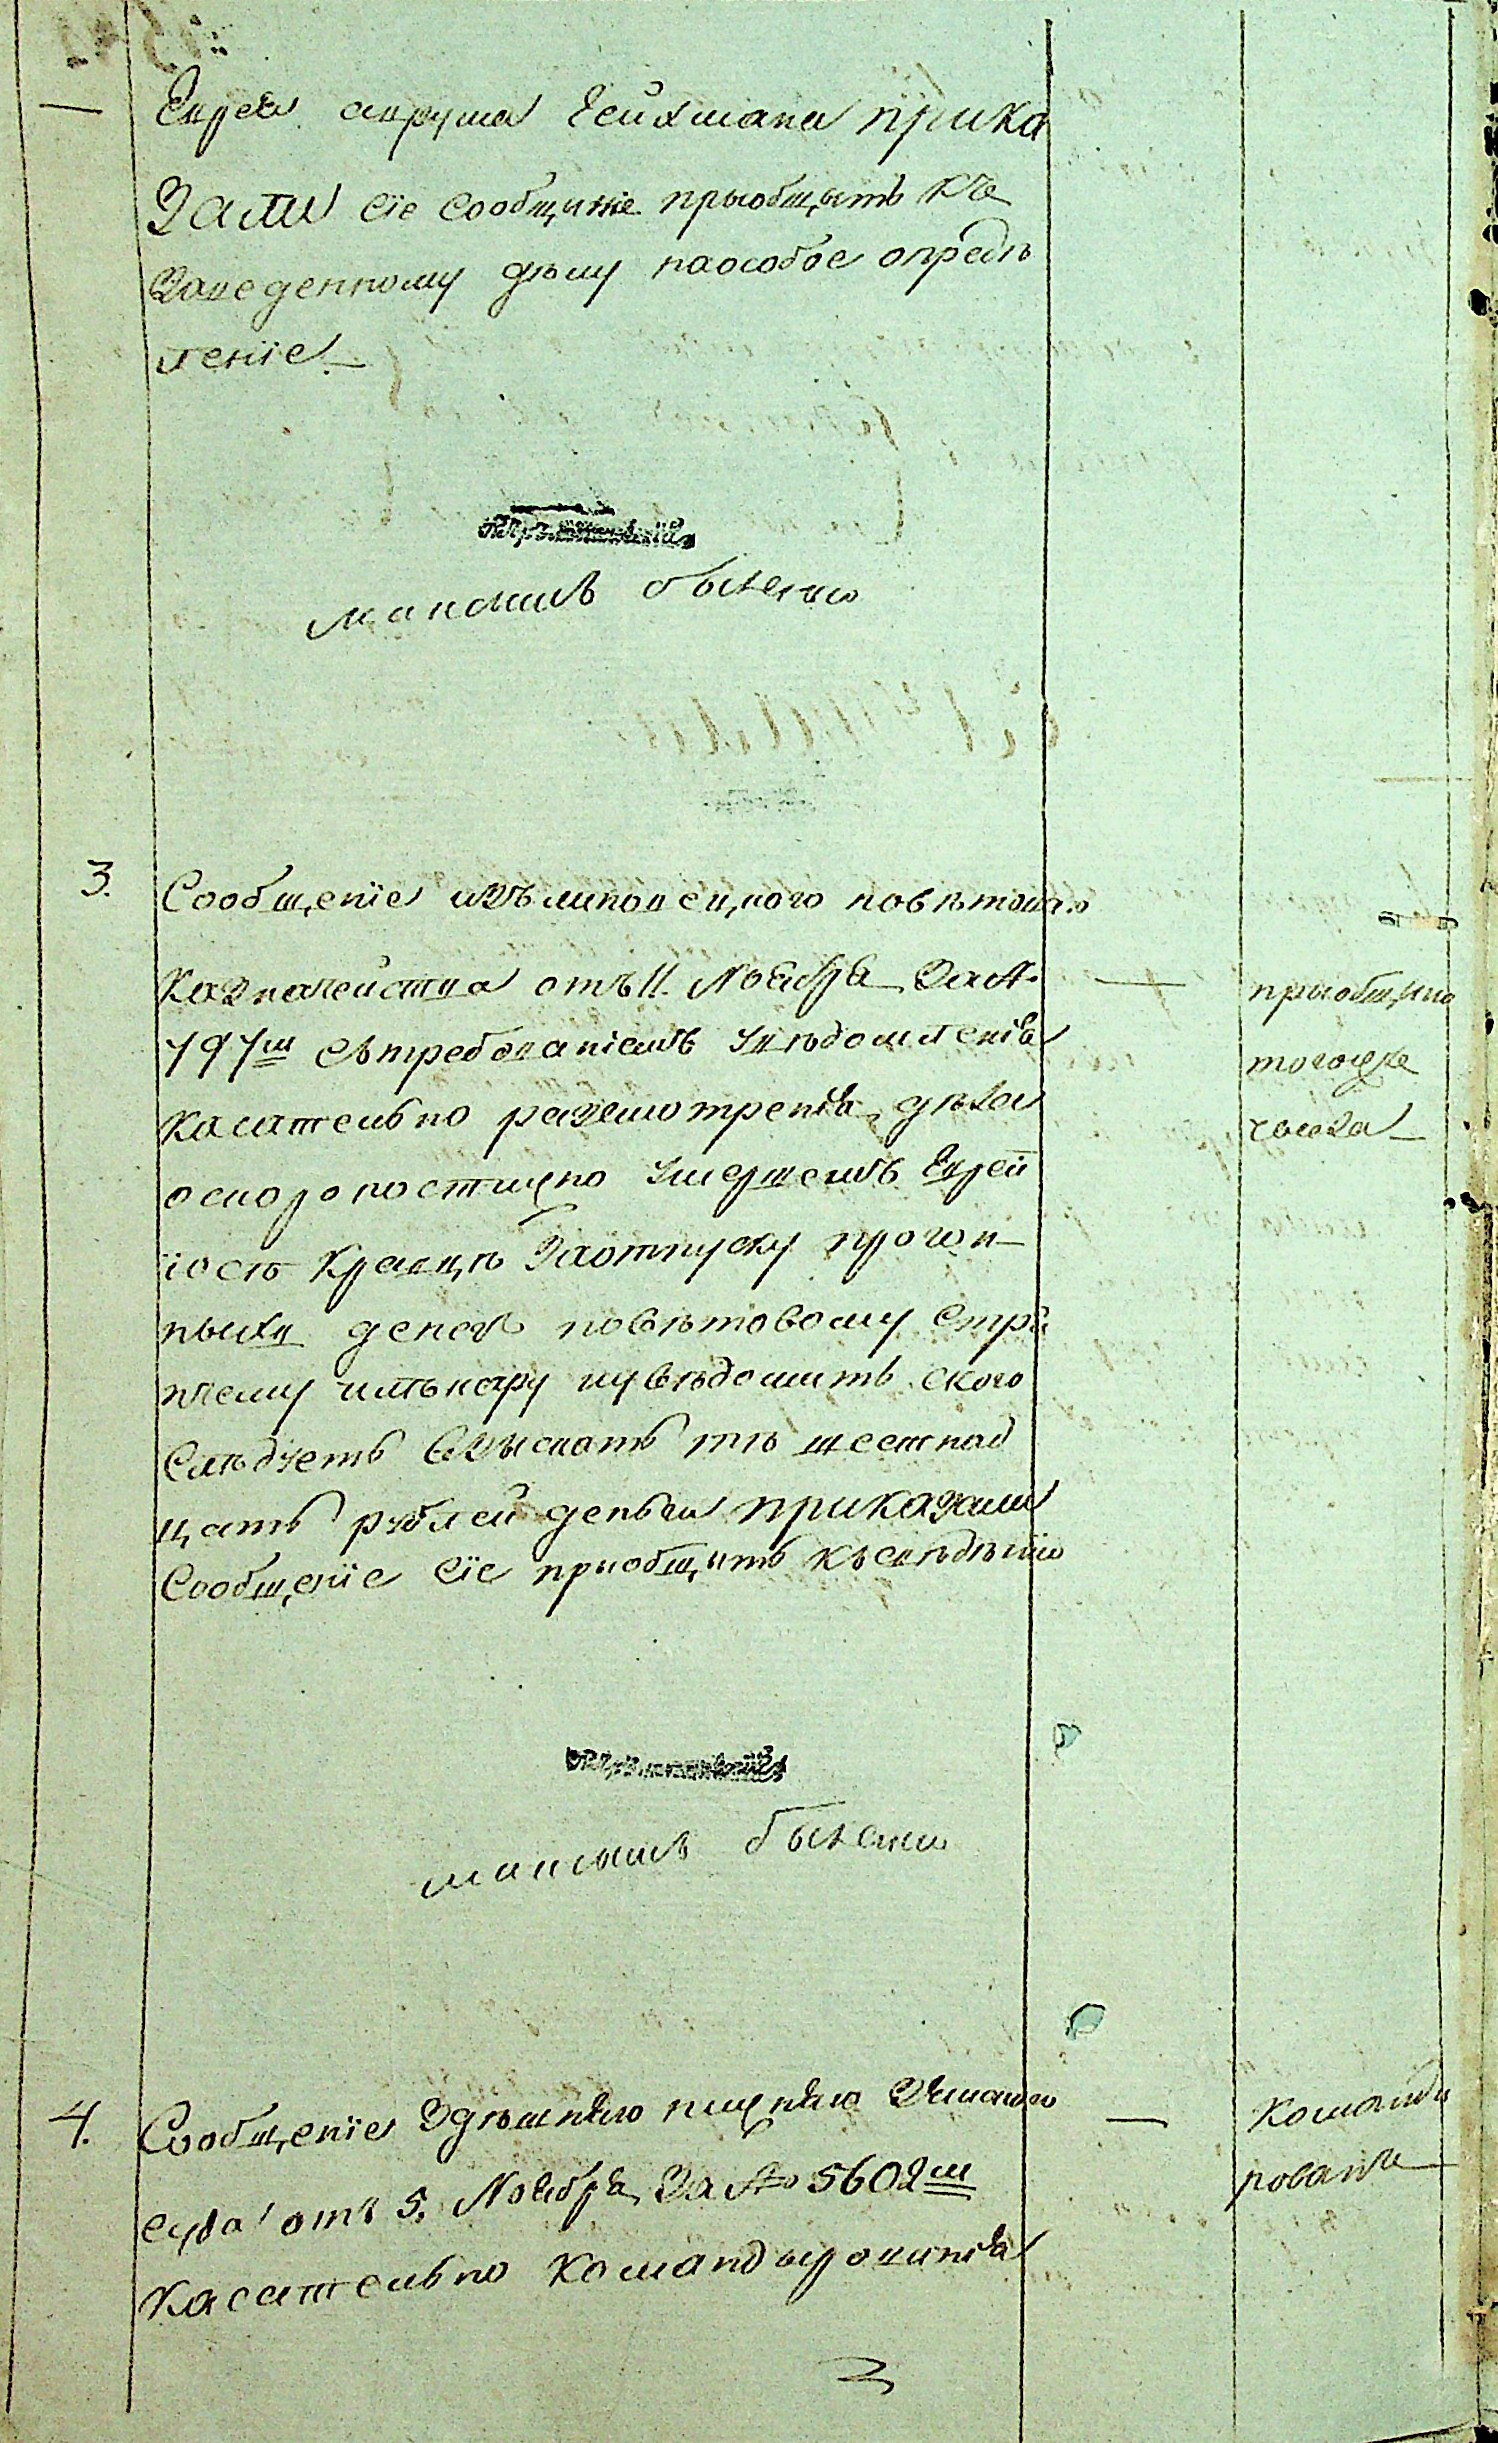 Еврея Авруша Гейхмана прика
зали сїе сообщение прыобщыть къ
заведенному дѣлу наособое опредѣ
ленїе
3.
Сообщенїе изъ липовецкого повѣтового
Казначейства отъ 11. Ноября за №
797м съ требованіемъ Увѣдомленія
касательно разсмотренія дѣла
оскоропостижно Умершемъ Еврей
Кравцѣ Заотпуску прогон
ныхъ денегъ повѣтовому Стря
пчему иувѣдомить ского
Слѣдуетъ Взыскать тѣ шестнад
цать рублей деньги приказали
Сообщенїе Сїе прыобщыть къ свѣдѣнїю
прыобщено
тогоже
числа
4.
Сообщенїе Здѣшняго нижняго Земского
суда отъ 5. Ноября За № 5602м
Касательно Командырованія
команды
рованіе